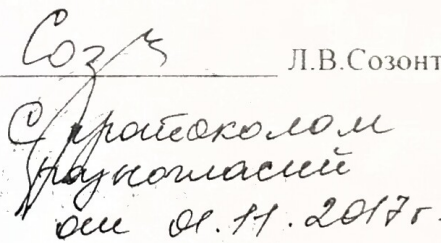 Соз Л.В.Созонт
С протоколом
разногласий
от 01.11.2017г.